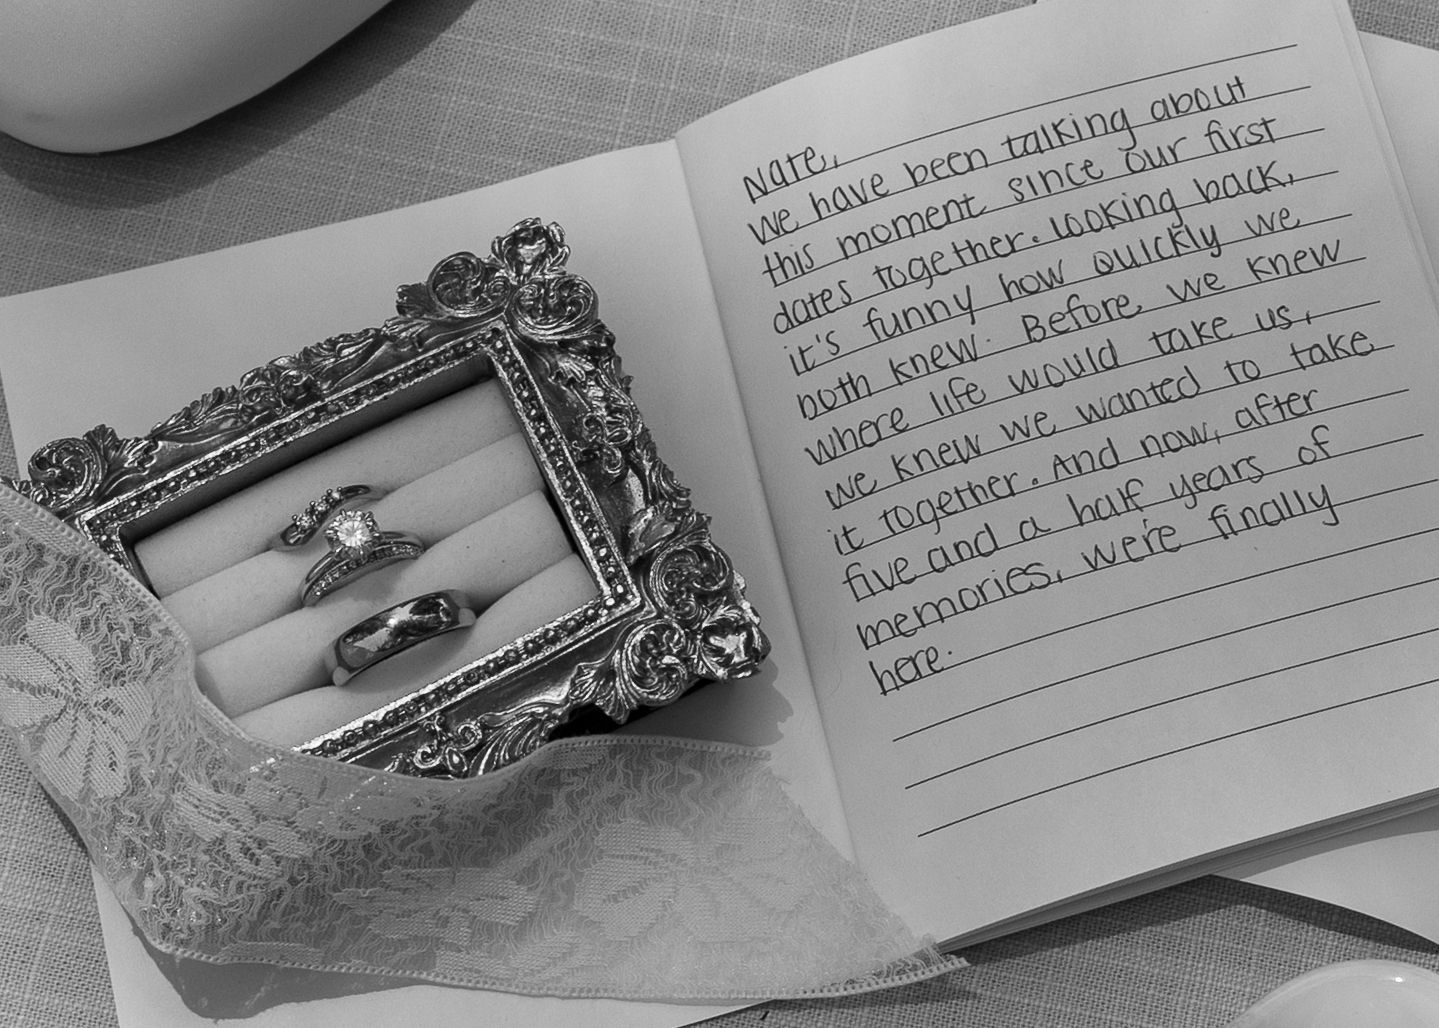 Nate,
we have been talking about
this moment since our first
dates together. Looking back,
it's funny how quickly we
both knew. Before we knew
where life would take us,
we knew we wanted to take
it together. And now, after
five and a half years of
memories, we're finally
here.